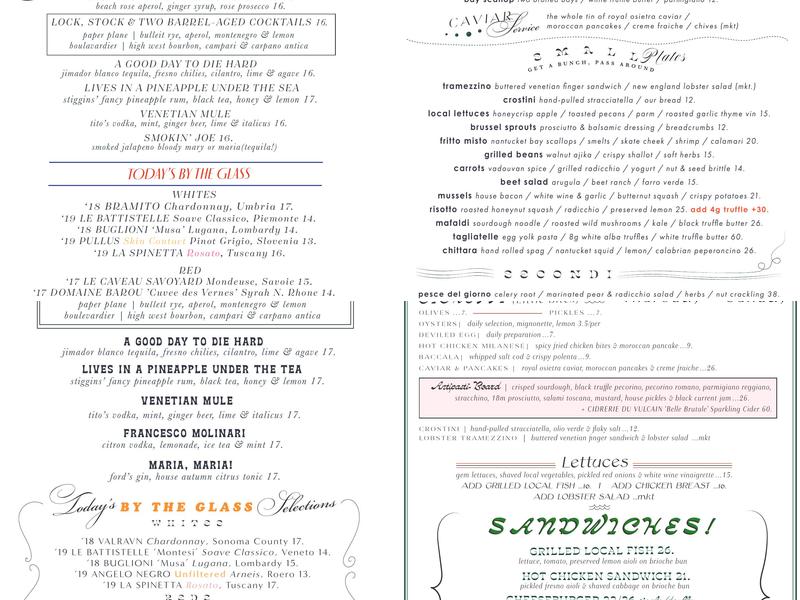 beach rose aperol, ginger syrup, rose prosecco 16.
LOCK, STOCK & TWO BARREL-AGED COCKTAILS 16.
paper plane | bulleit rye, aperol, montenegro & lemon
boulavardier | high west bourbon, campari & carpano antica
A GOOD DAY TO DIE HARD
jimador blanco tequila, fresno chilies, cilantro, lime & agave 16.
LIVES IN A PINEAPPLE UNDER THE SEA
stiggins' fancy pineapple rum, black tea, honey & lemon 17.
VENETIAN MULE
tito's vodka, mint, ginger beer, lime & italicus 16.
SMOKIN' JOE 16.
smoked jalapeno bloody mary or maria(tequila!)
TODAY'S BY THE GLASS
WHITES
'18 BRAMITO Chardonnay, Umbria 17.
'19 LE BATTISTELLE Soave Classico, Piemonte 14.
'18 BUGLIONI 'Musa' Lugana, Lombardy 14.
'19 PULLUS Skin Contact Pinot Grigio, Slovenia 13.
'19 LA SPINETTA Rosato, Tuscany 16.
RED
'17 LE CAVEAU SAVOYARD Mondeuse, Savoie 15.
'17 DOMAINE BAROU 'Cuvee des Vernes' Syrah N. Rhone 14.
paper plane | bulleit rye, aperol, montenegro & lemon
boulevardier | high west bourbon, campari & carpano antica
A GOOD DAY TO DIE HARD
jimador blanco tequila, fresno chilies, cilantro, lime & agave 17.
LIVES IN A PINEAPPLE UNDER THE TEA
stiggins' fancy pineapple rum, black tea, honey & lemon 17.
VENETIAN MULE
tito's vodka, mint, ginger beer, lime & italicus 17.
FRANCESCO MOLINARI
citron vodka, lemonade, ice tea & mint 17.
MARIA, MARIA!
ford's gin, house autumn citrus tonic 17.
Today's BY THE GLASS Selections
WHITES
'18 VALRAVN Chardonnay, Sonoma County 17.
'19 LE BATTISTELLE 'Montesi' Soave Classico, Veneto 14.
'18 BUGLIONI 'Musa' Lugana, Lombardy 15.
'19 ANGELO NEGRO Unfiltered Arneis, Roero 13.
'19 LA SPINETTA Rosato, Tuscany 17.
CAVIAR Service
the whole tin of royal osietra caviar /
moroccan pancakes / creme fraiche / chives (mkt)
SMALL Plates
GET A BUNCH, PASS AROUND
tramezzino buttered venetian finger sandwich / new england lobster salad (mkt.)
crostini hand-pulled stracciatella / our bread 12.
local lettuces honeycrisp apple / toasted pecans / parm / roasted garlic thyme vin 15.
brussel sprouts prosciutto & balsamic dressing / breadcrumbs 12.
fritto misto nantucket bay scallops / smelts / skate cheek / shrimp / calamari 20.
grilled beans walnut ajika / crispy shallot / soft herbs 15.
carrots vadouvan spice / grilled radicchio / yogurt / nut & seed brittle 14.
beet salad arugula / beet ranch / farro verde 15.
mussels house bacon / white wine & garlic / butternut squash / crispy potatoes 21.
risotto roasted honeynut squash / radicchio / preserved lemon 25. add 4g truffle +30.
mafaldi sourdough noodle / roasted wild mushrooms / kale / black truffle butter 26.
tagliatelle egg yolk pasta / 8g white alba truffles / white truffle butter 60.
chittara hand rolled spag / nantucket squid / lemon/ calabrian peperoncino 26.
SECONDI
pesce del giorno celery root / marinated pear & radicchio salad / herbs / nut crackling 38.
OLIVES ...7. PICKLES ...7.
OYSTERS| daily selection, mignonette, lemon 3.5/per
DEVILED EGG| daily preparation...7.
HOT CHICKEN MILANESE| spicy fried chicken bites & moroccan pancake...9.
BACCALA| whipped salt cod & crispy polenta...9.
CAVIAR & PANCAKES | royal osietra caviar, moroccan pancakes & creme fraiche...26.
Antipasti Board | crisped sourdough, black truffle pecorino, pecorino romano, parmigiano reggiano,
stracchino, 18m prosciutto, salami toscana, mustard, house pickles & black currant jam...26.
+ CIDRERIE DU VULCAIN 'Belle Brutale' Sparkling Cider 60.
CROSTINI | hand-pulled stracciatella, olio verde & flaky salt...12.
LOBSTER TRAMEZZINO | buttered venetian finger sandwich & lobster salad ...mkt
Lettuces
gem lettuces, shaved local vegetables, pickled red onions & white wine vinaigrette...15.
ADD GRILLED LOCAL FISH ...16. | ADD CHICKEN BREAST ...16.
ADD LOBSTER SALAD ...mkt
SANDWICHES!
GRILLED LOCAL FISH 26.
lettuce, tomato, preserved lemon aioli on brioche bun
HOT CHICKEN SANDWICH 21.
pickled fresno aioli & shaved cabbage on brioche bun